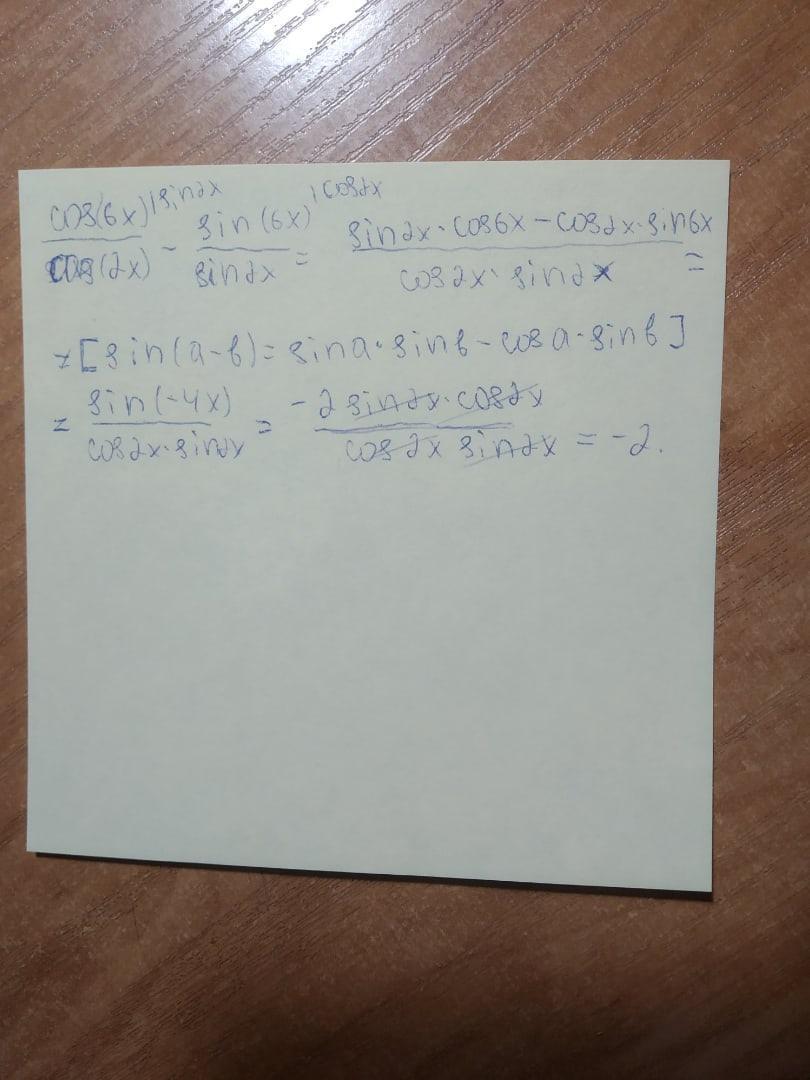 cos(6x)|sin2x / cos(2x) - sin(6x)|cos2x / sin2x = sin2x·cos6x-cos2x·sin6x / cos2x·sin2x =
=[sin(a-b)=sina·sinb-cosa·sinb]
= sin(-4x) / cos2x·sin2x = -2sin2x·cos2x / cos2x sin2x = -2.